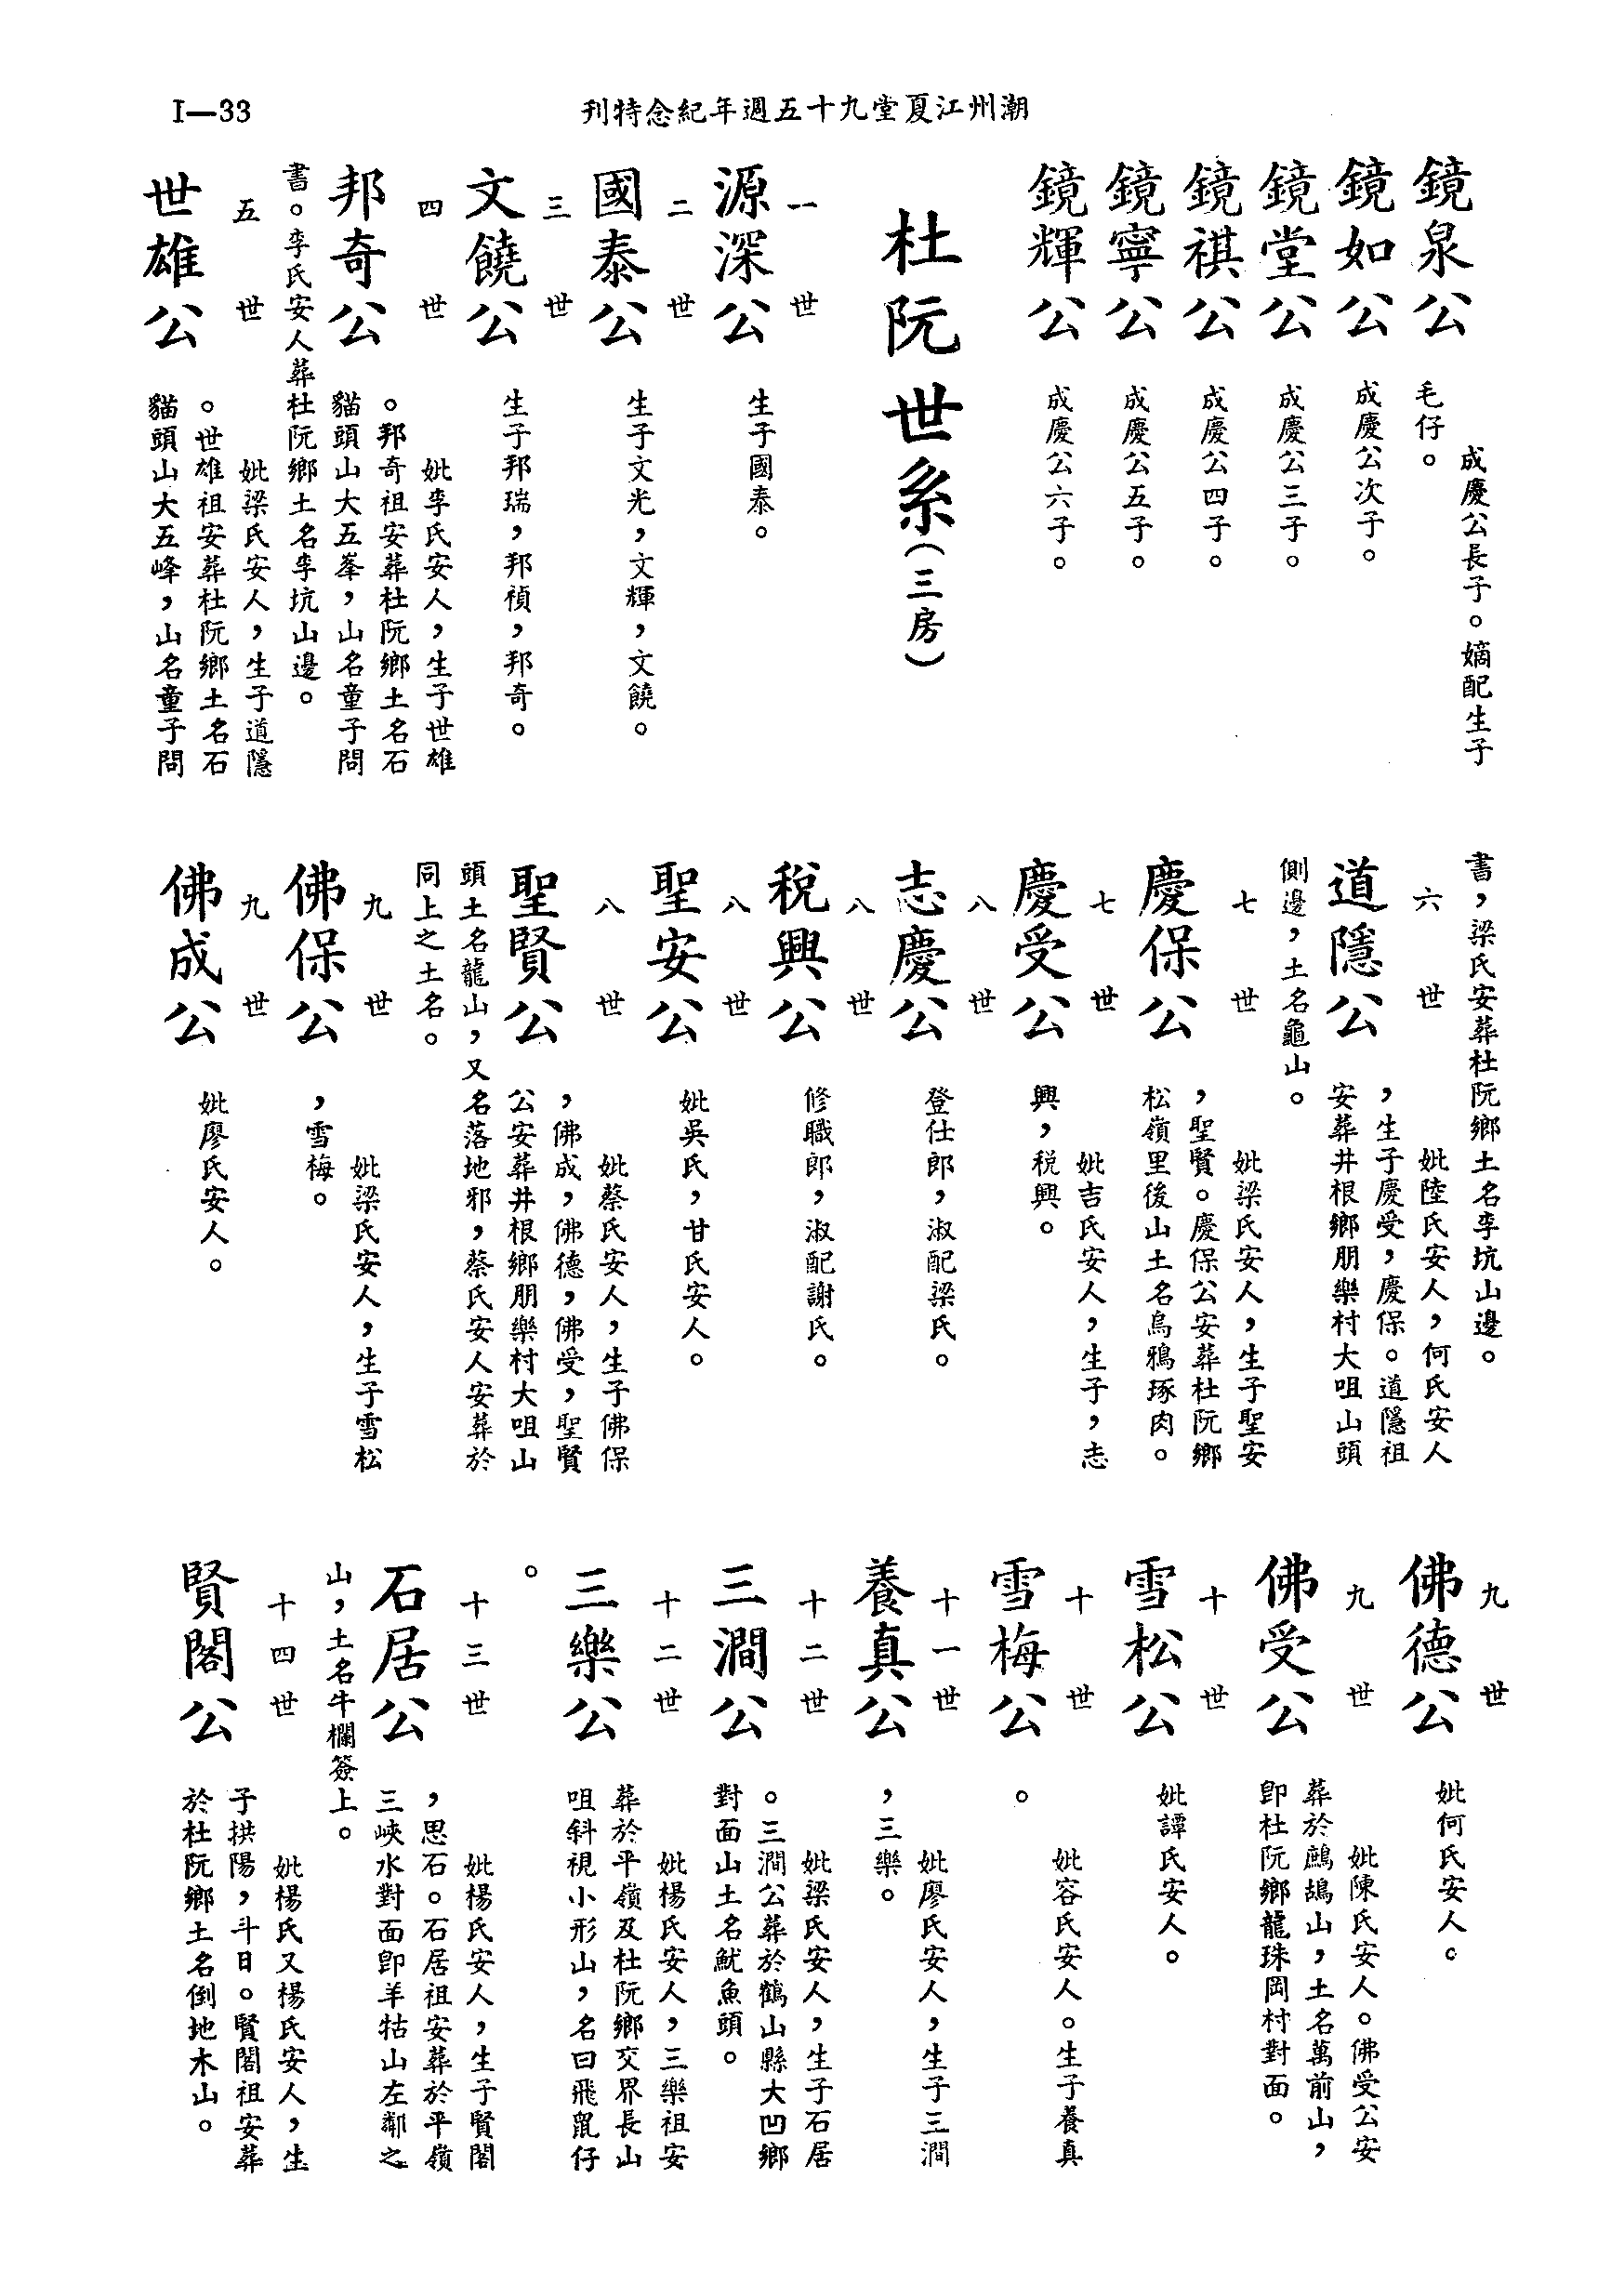 I—33
潮州江夏堂九十五週年紀念特刊
鏡泉公
成慶公長子。嫡配生子
毛仔。
鏡如公
成慶公次子。
鏡堂公
成慶公三子。
鏡祺公
成慶公四子。
鏡寧公
成慶公五子。
鏡輝公
成慶公六子。
杜阮世系(三房)
一世
源深公
生子國泰。
二世
國泰公
生子文光，文輝，文饒。
三世
文饒公
生子邦瑞，邦禎，邦奇。
四世
邦奇公
妣李氏安人，生子世雄
。邦奇祖安葬杜阮鄉土名石
貓頭山大五峯，山名童子問
書。李氏安人葬杜阮鄉土名李坑山邊。
五世
世雄公
妣梁氏安人，生子道隱
。世雄祖安葬杜阮鄉土名石
貓頭山大五峰，山名童子問
書，梁氏安葬杜阮鄉土名李坑山邊。
六世
道隱公
妣陸氏安人，何氏安人
，生子慶受，慶保。道隱祖
安葬井根鄉朋樂村大咀山頭
側邊，土名龜山。
七世
慶保公
妣梁氏安人，生子聖安
，聖賢。慶保公安葬杜阮鄉
松嶺里後山土名烏鴉琢肉。
七世
慶受公
妣吉氏安人，生子，志
興，稅興。
八世
志慶公
登仕郎，淑配梁氏。
八世
稅興公
修職郎，淑配謝氏。
八世
聖安公
妣吳氏，甘氏安人。
八世
聖賢公
妣蔡氏安人，生子佛保
，佛成，佛德，佛受，聖賢
公安葬井根鄉朋樂村大咀山
頭土名龍山，又名落地邪，蔡氏安人安葬於
同上之土名。
九世
佛保公
妣梁氏安人，生子雪松
，雪梅。
九世
佛成公
妣廖氏安人。
九世
佛德公
妣何氏安人。
九世
佛受公
妣陳氏安人。佛受公安
葬於鷓鴣山，土名萬前山，
即杜阮鄉龍珠岡村對面。
十世
雪松公
妣譚氏安人。
十世
雪梅公
妣容氏安人。生子養真
。
十一世
養真公
妣廖氏安人，生子三澗
，三樂。
十二世
三澗公
妣梁氏安人，生子石居
。三澗公葬於鶴山縣大凹鄉
對面山土名魷魚頭。
十二世
三樂公
妣楊氏安人，三樂祖安
葬於平嶺及杜阮鄉交界長山
咀斜視小形山，名曰飛鼠仔
。
十三世
石居公
妣楊氏安人，生子賢閣
，思石。石居祖安葬於平嶺
三峽水對面即羊牯山左鄰之
山，土名牛欄簽上。
十四世
賢閣公
妣楊氏又楊氏安人，生
子拱陽，斗日。賢閣祖安葬
於杜阮鄉土名倒地木山。